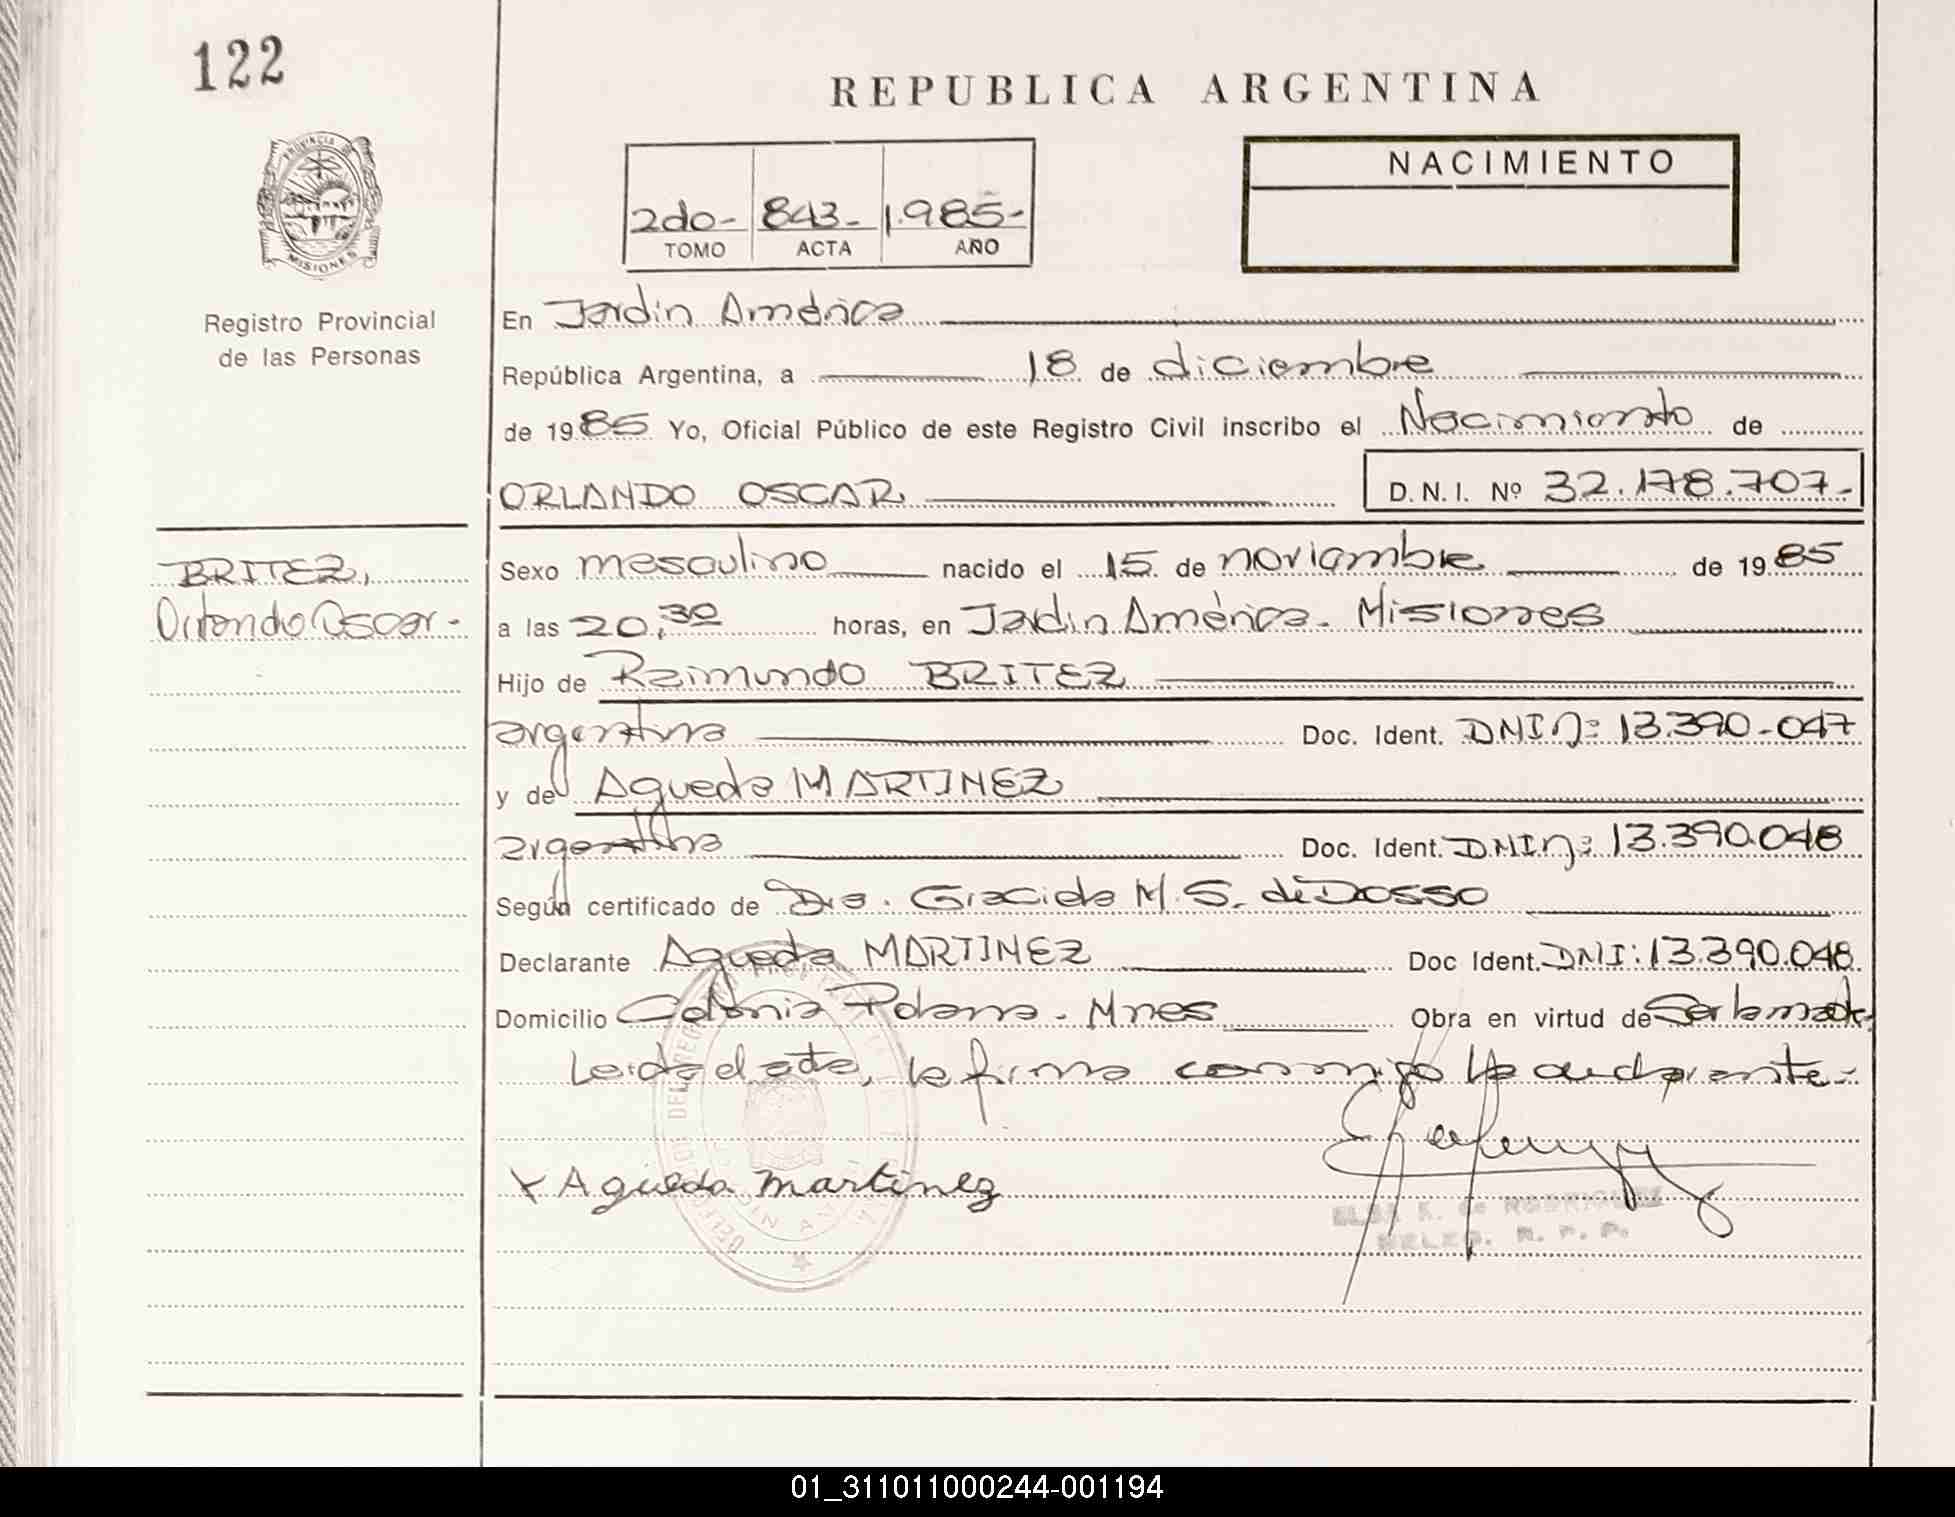 122
REPUBLICA ARGENTINA
PROVINCIA DE
MISIONES
Registro Provincial
de las Personas
2do- 843- 1.985-
TOMO ACTA AÑO
NACIMIENTO
En Jardin América
República Argentina, a 18 de diciembre
de 1985 Yo, Oficial Público de este Registro Civil inscribo el Nacimiento de
ORLANDO OSCAR D.N.I. Nº 32.178.707-
BRITEZ,
Orlando Oscar.-
Sexo masculino nacido el 15 de noviembre de 1985
a las 20,30 horas, en Jardin América- Misiones
Hijo de Raimundo BRITEZ
argentina Doc. Ident. DNI n: 13.390-047
y de Agueda MARTINEZ
argentina Doc. Ident. DNI n: 13.390.048
Según certificado de Dra. Graciela M. S. de DOSSO
Declarante Agueda MARTINEZ Doc Ident. DNI: 13.390.048
Domicilio Colonia Polana - Mnes Obra en virtud de Ser la madre
Leida el acta, la firma conmigo la declarante-
x Agueda martinez
ELBA K. de RODRIGUEZ
DELEG. R. P. P.
01_311011000244-001194